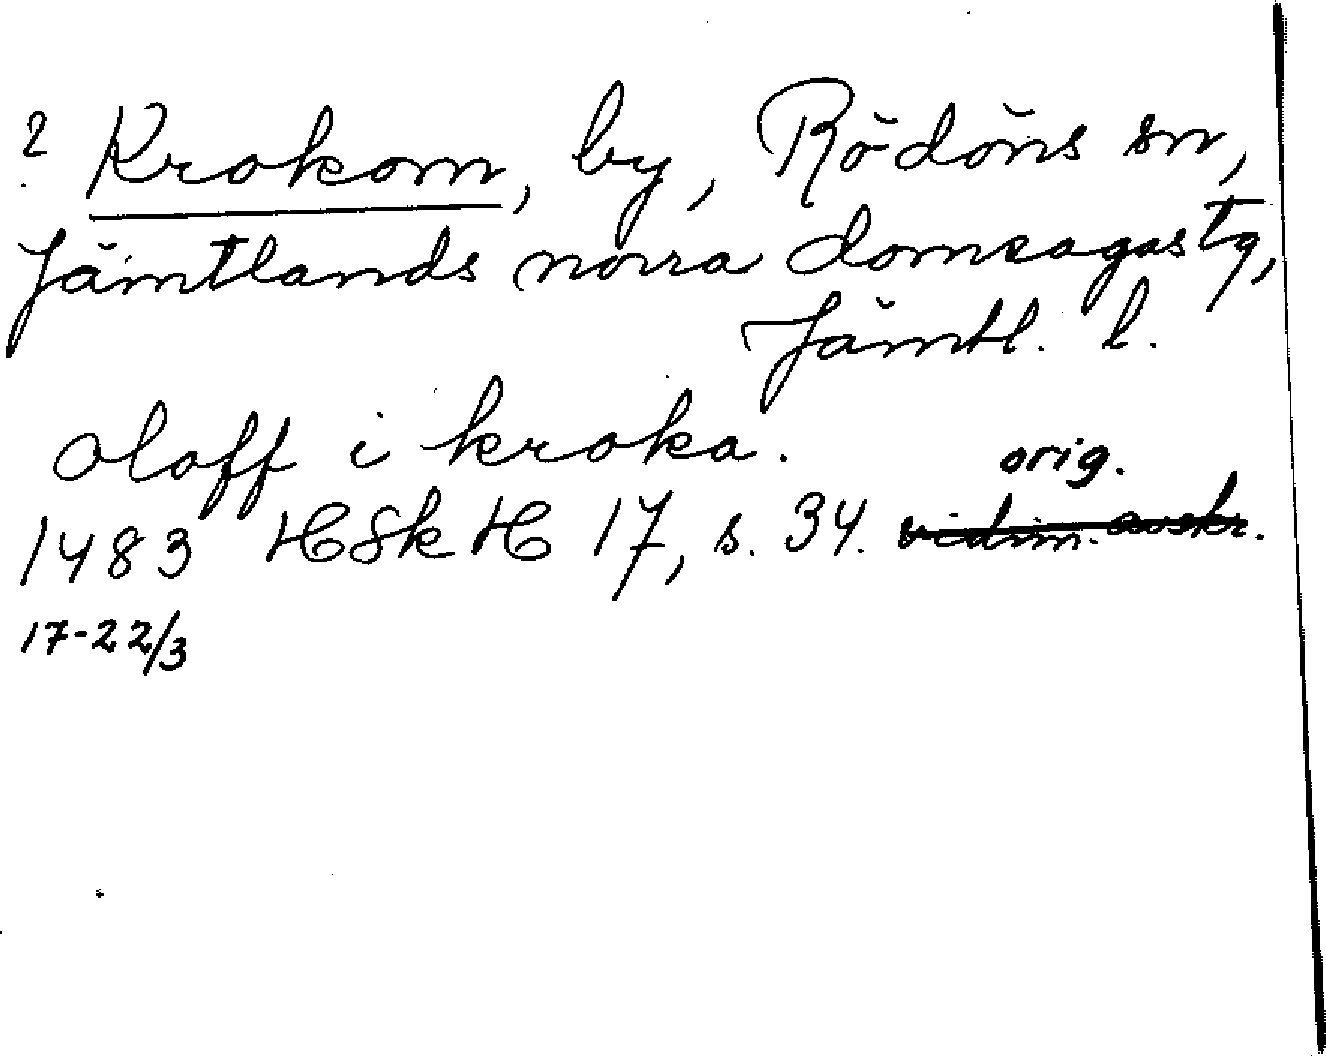 ? Krokom, by, Rödöns sn,
Jämtlands norra domsagas tg,
Jämtl. l.
oloff i kroka.
orig.
1483 HSkH 17, s. 34. vidim. avskr.
17-22/3